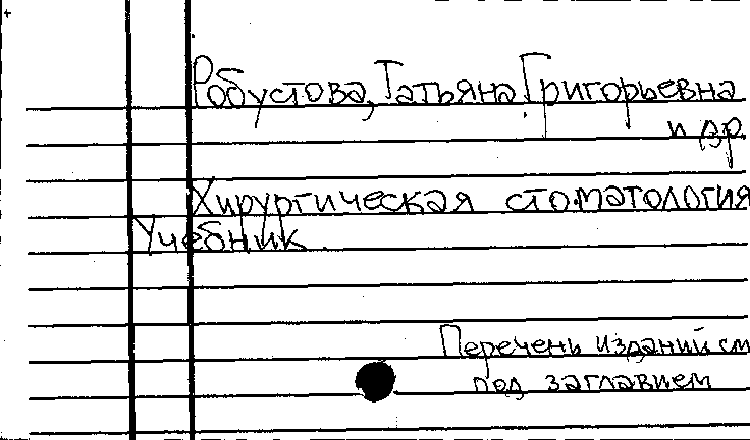 Робустова, Татьяна Григорьевна
и др
Хирургическая стоматология
Учебник.
Перечень изданий см
под заглавием